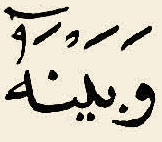 وَبَيْنَهُٓ